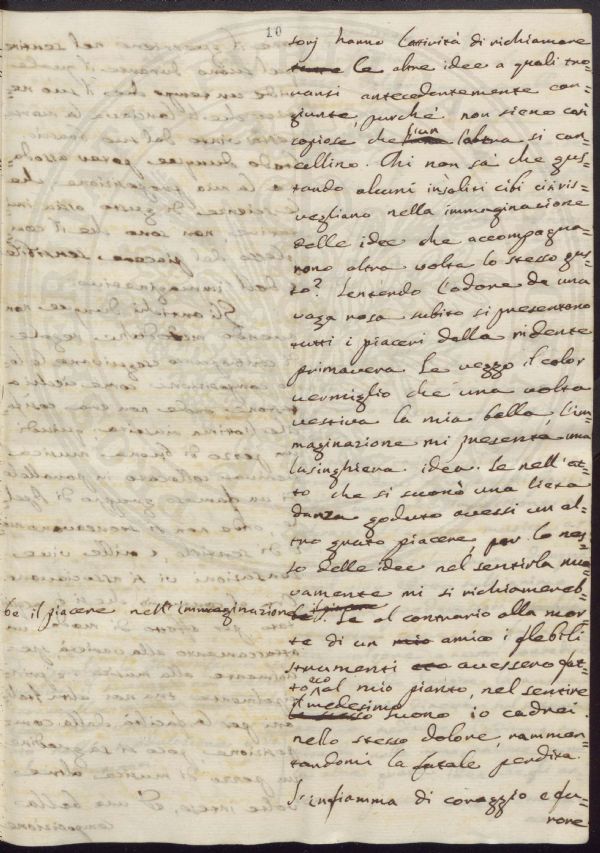 10
sorj hanno l'attività di richiamare
tutte le altre idee a quali tro=
vansi antecedentemente con=
giunte, purchè non sieno così
copiose che l'un l'altra si can=
cellino. Chi non sa che gus=
tando alcuni insoliti cibi ci ris=
vegliano nella immaginazione
delle idee che accompagna=
rono altra volta lo stesso gus=
to? Sentendo l'odore de una
vaga rosa subito si presentono
tutti i piaceri della ridente
primavera. Se veggo il color
vermiglio che una volta
vestiva la mia bella, l'im=
maginazione mi presenta una
lusinghiera idea. Se nell'at=
to che si suonò una lieta
danza goduto avessi un al=
tro grato piacere, per lo nes=
so delle idee nel sentirla nuo=
vamente mi si richiamereb=
be il piacere nell'immaginazione
be. Se al contrario alla mor=
te di un mio amico i flebili
strumenti avessero fat=
to eco al mio pianto, nel sentire
il medesimo
lo stesso suono io cadrei
nello stesso dolore, rammen=
tandomi la fatale perdita.
S'infiamma di coraggio e fu=
rore